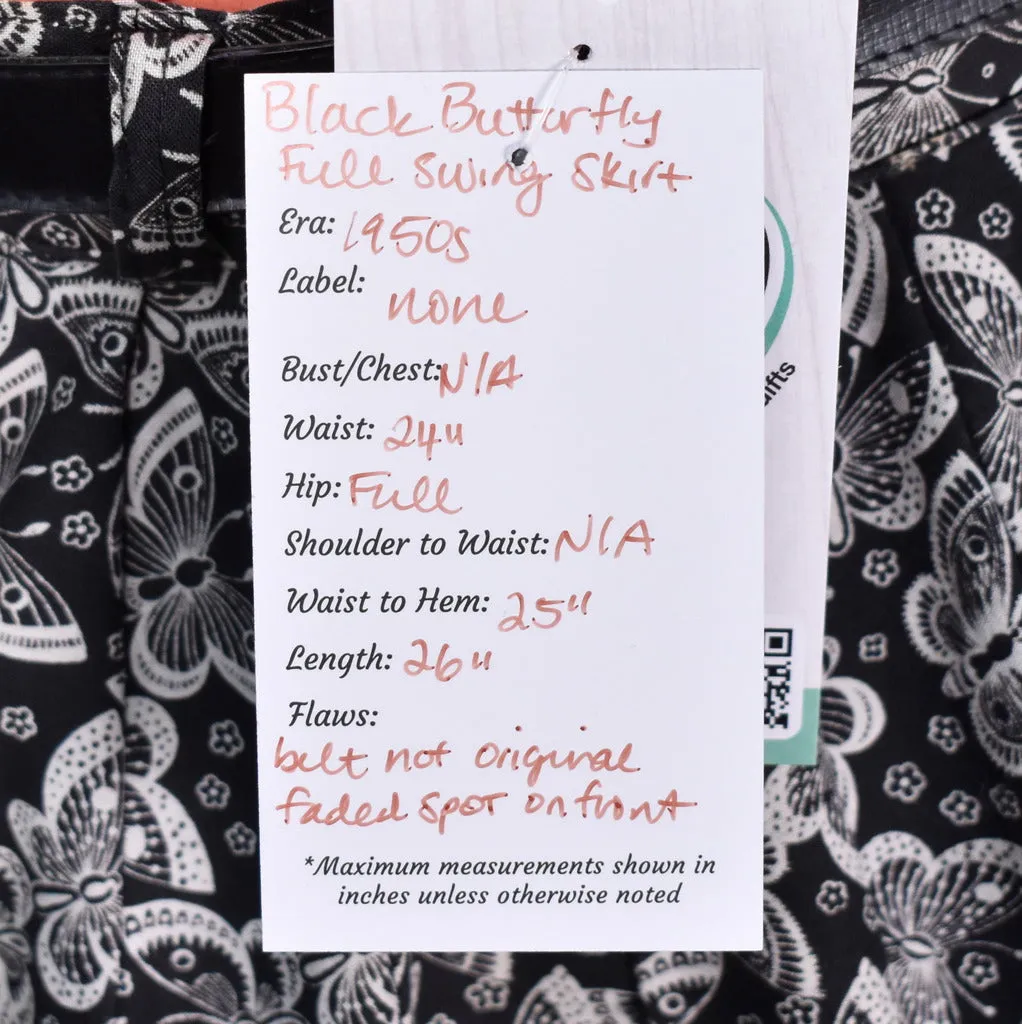 Black Butterfly
Full Swing Skirt
Era: 1950s
Label: none
Bust/Chest: N/A
Waist: 24"
Hip: Full
Shoulder to Waist: N/A
Waist to Hem: 25"
Length: 26"
Flaws:
belt not original
faded spot on front
*Maximum measurements shown in
inches unless otherwise noted